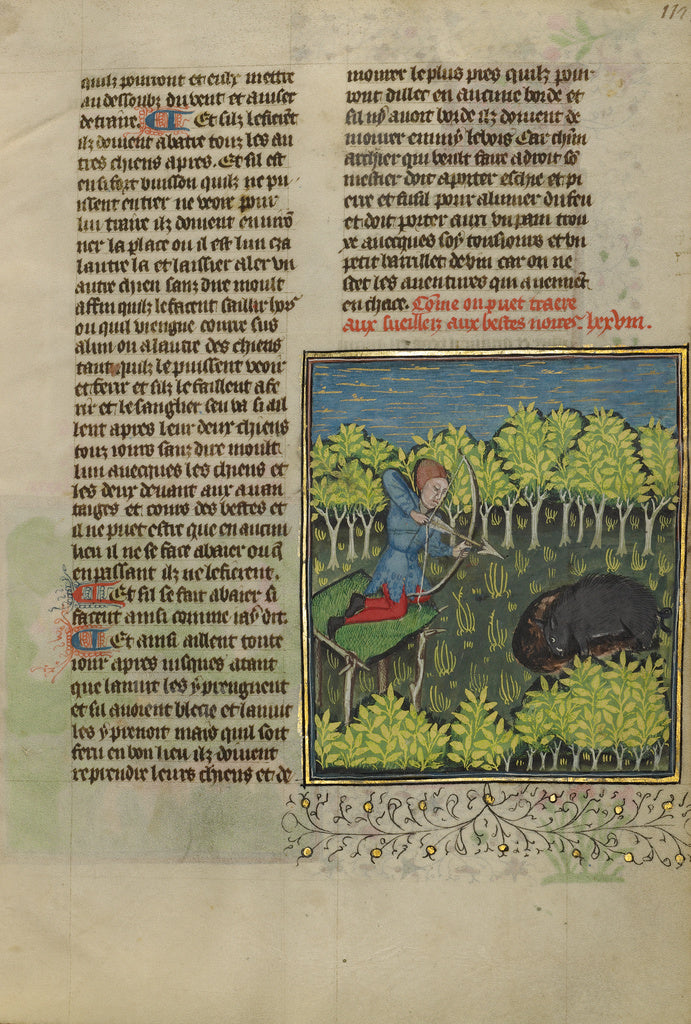 quilz pourront et eulx mettre
au dessoubz du vent et aviser
de traire. Et silz le fierēt
ilz doivent abatre touz les au
tres chiens apres. Et sil est
en si fort buisson quilz ne pu
issent entrer ne veoir pour
lui traire ilz doivent envirō
ner la place ou il est lun cza
lautre la et laissier aler un
autre chien sanz dire moult
affin quilz le facent saillir hors
ou quil viengne courre sus
a lun ou a lautre des chiens
tant quilz le puissent veoir
et ferir et silz le faillent a fe
rir et le sanglier sen va si ail
lent apres leur deux chiens
touz iours sanz dire moult
lun avecques les chiens et
les deux devant aux avan
tages et cours des bestes et
il ne puet estre que en aucun
lieu il ne se face abaier ou q̄
en passant ilz ne le fierent.
Et sil se fait abaier si
facent ainsi comme iay dit.
Et ainsi aillent toute
iour apres iusques atant
que la nuit les y prengnent
et sil avoient blecie et la nuit
les y prenoit mais quil soit
feru en bon lieu ilz doivent
reprendre leurs chiens et de
mourer le plus pres quilz pour
ront diller en aucune borde et
sil ny avoit borde ilz doivent de
mourer emmy le bois Car chūn
archier qui veult faire a droit sō
mestier doit aporter esche et pi
erre et fusil pour alumer du feu
et doit porter aussi un pain trou
ve avecques soy tousiours et un
petit barillet de vin car on ne
scet les aventures qui aviennēt
en chace. Cōme on puet traere
aux fueilliers aux bestes noires. lxxviii.